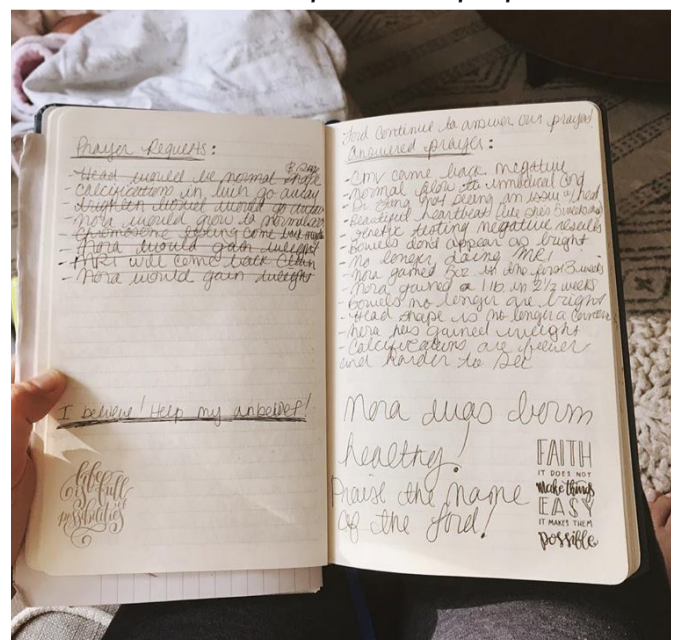 Prayer Requests:
- Head would be normal shape
- Calcifications in go away
- brighten bowel would go away
- Nora would grow to normal
- Chromosome testing come back
- Nora would gain weight
- MRI will come back clean
- Nora would gain weight
I believe! Help my unbelief!
life
is full
of
possibilities
Lord Continue to answer our prayers!
Answered prayers:
- CMV came back negative
- normal flow to umbilical cord
- Dr. being not seeing an issue w/ head
- Beautiful heartbeat
- genetic testing negative results
- Bowels don't appear as bright
- No longer doing MRI
- Nora gained 5oz in the first 3 weeks
- Nora gained a 1 lb in 2 1/2 weeks
- Bowels no longer are bright
- Head shape is no longer a concern
- Nora has gained weight
- Calcifications are fewer
and harder to see
Nora was born
healthy!
Praise the name
of the Lord!
FAITH
IT DOES NOT
Make things
EASY
IT MAKES THEM
possible